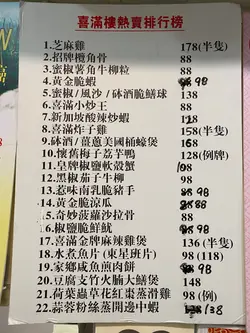 喜滿樓熱賣排行榜
1.芝麻雞 178(半隻)
2.招牌欖角骨 88
3.蜜椒薯角牛柳粒 88
4.黃金脆蝦 98
5.蜜椒/風沙/砵酒脆鱔球 138
6.喜滿小炒王 88
7.新加坡酸辣炒蝦 128
8.喜滿炸子雞 158(半隻)
9.砵酒/薑蔥美國桶蠔煲 168
10.懷舊梅子荔芋鴨 128(例牌)
11.皇牌椒鹽軟殼蟹 108
12.黑椒茄子牛柳 98
13.惹味南乳脆豬手 98
14.黃金脆涼瓜 88
15.奇妙菠蘿沙拉骨 88
16.椒鹽脆鮮魷 98
17.喜滿金牌麻辣雞煲 136(半隻)
18.水煮魚片(東星班片) 98(118)
19.家鄉咸魚煎肉餅 98
20.豆腐支竹火腩大鱔煲 148
21.荷葉蟲草花紅棗蒸滑雞 98(例)
22.蒜蓉粉絲蒸開邊中蝦 138